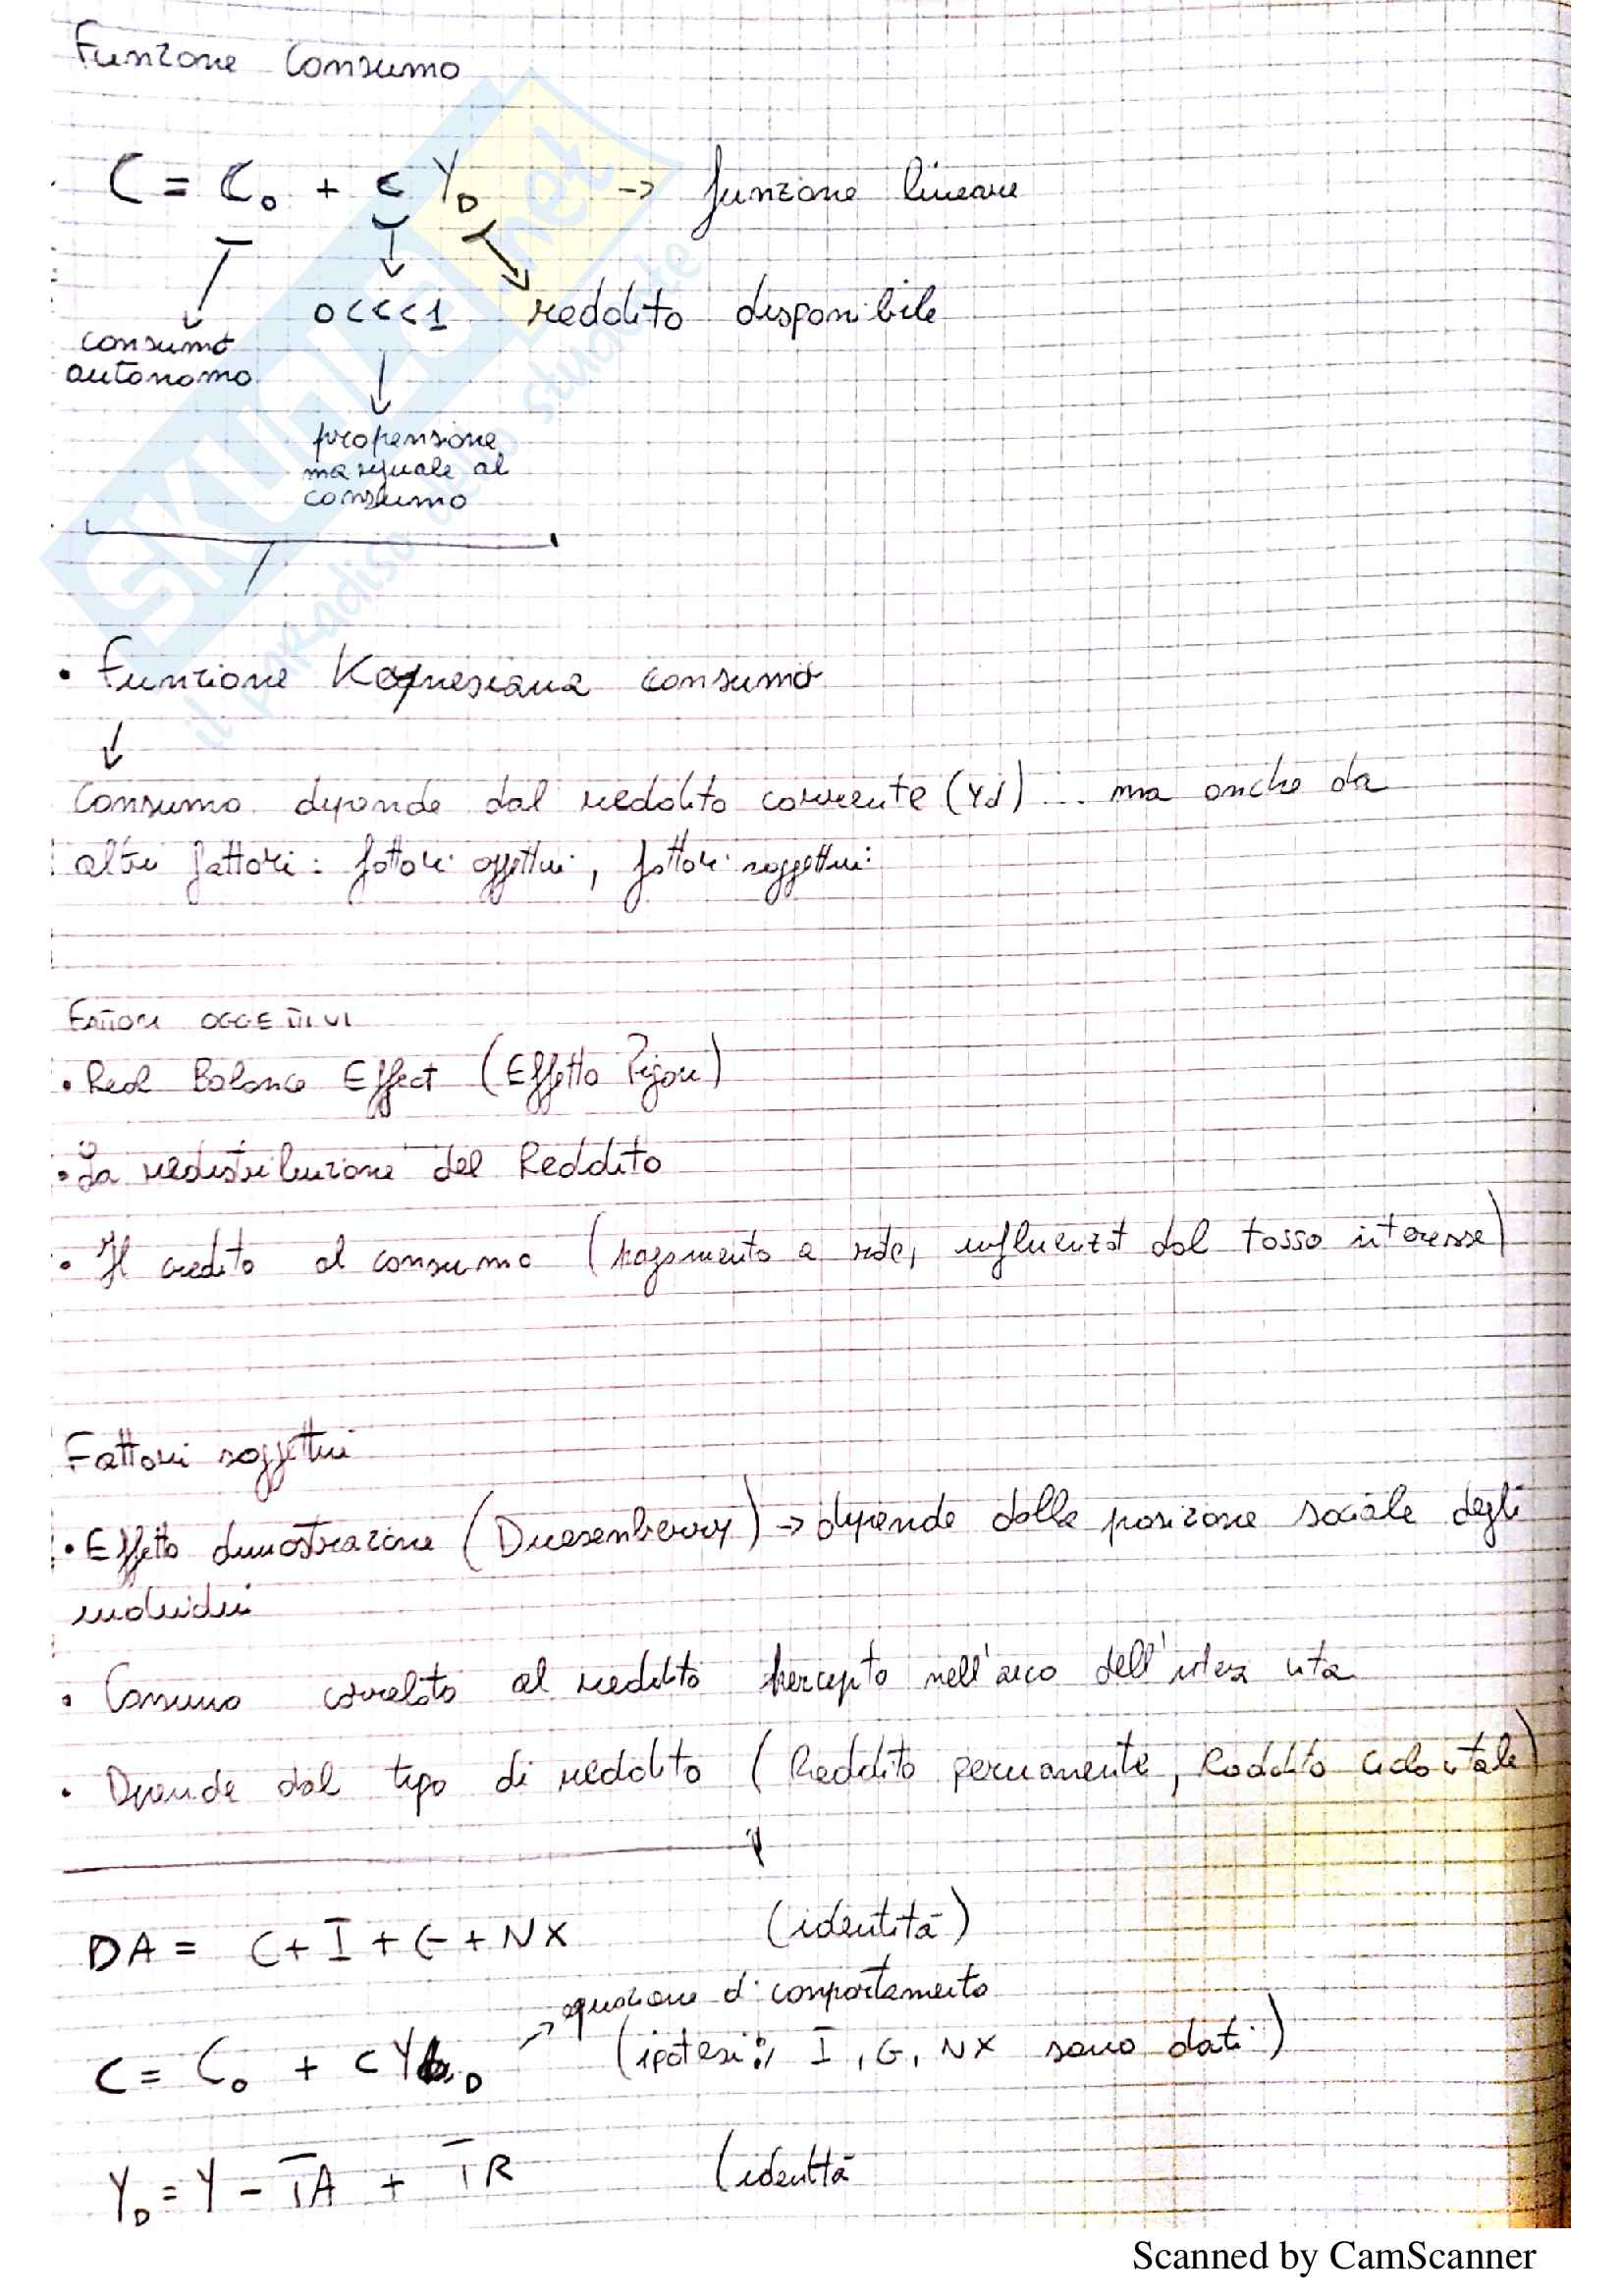 Funzione Consumo
C = C₀ + c Y_D → funzione lineare
0<c<1 reddito disponibile
consumo
autonomo
propensione
marginale al
consumo
• Funzione Keynesiana consumo
↓
Consumo dipende dal reddito corrente (Yd)... ma anche da
altri fattori: fattori oggettivi, fattori soggettivi
FATTORI OGGETTIVI
• Real Balance Effect (Effetto Pigou)
• La redistribuzione del Reddito
• Il credito al consumo (pagamento a rate, influenzat dal tasso interesse)
Fattori soggettivi
• Effetto dimostrazione (Duesenberry) → dipende dalla posizione sociale degli
individui
• Consumo correlato al reddito percepito nell'arco dell'intera vita
• Dipende dal tipo di reddito (Reddito permanente, Reddito ciclo vitale)
DA = C + I̅ + G + NX (identità)
equazione di comportamento
C = C₀ + cY_D ↗ (ipotesi: I, G, NX sono dati)
Y_D = Y − T̅A + T̅R (identità
SKUOLA.net
il paradiso dello studente
Scanned by CamScanner